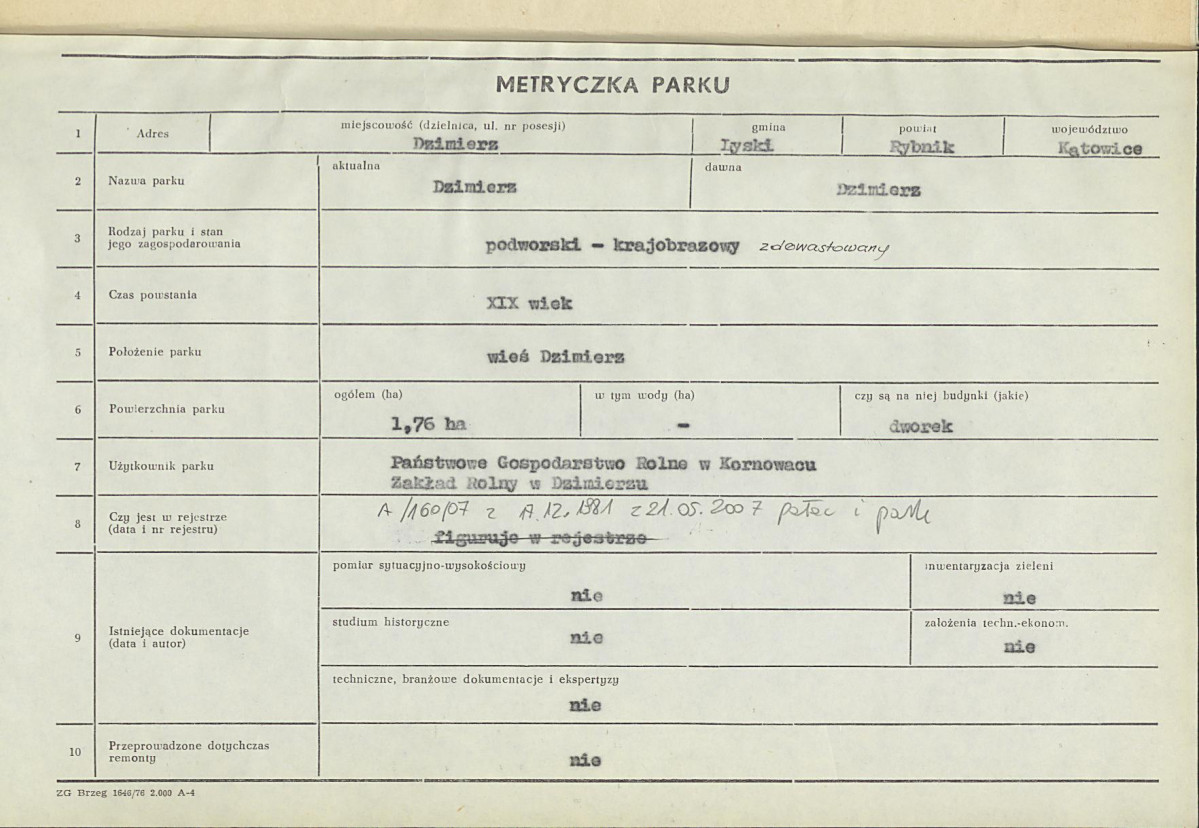 METRYCZKA PARKU
1 Adres miejscowość (dzielnica, ul. nr posesji) gmina powiat województwo
Dzimierz Lyski Rybnik Kątowice
2 Nazwa parku aktualna dawna
Dzimierz Dzimierz
3 Rodzaj parku i stan
jego zagospodarowania
podworski - krajobrazowy zdewastowany
4 Czas powstania
XIX wiek
5 Położenie parku
wieś Dzimierz
6 Powierzchnia parku ogółem (ha) w tym wody (ha) czy są na niej budynki (jakie)
1,76 ha - dworek
7 Użytkownik parku
Państwowe Gospodarstwo Rolne w Kornowacu
Zakład Rolny w Dzimierzu
8 Czy jest w rejestrze
(data i nr rejestru)
A/160/07 z 12.1981 z 21.05.2007 pałac i park
figuruje w rejestrze
9 Istniejące dokumentacje
(data i autor)
pomiar sytuacyjno-wysokościowy inwentaryzacja zieleni
nie nie
studium historyczne założenia techn.-ekonom.
nie nie
techniczne, branżowe dokumentacje i ekspertyzy
nie
10 Przeprowadzone dotychczas
remonty
nie
ZG Brzeg 1646/76 2.000 A-4